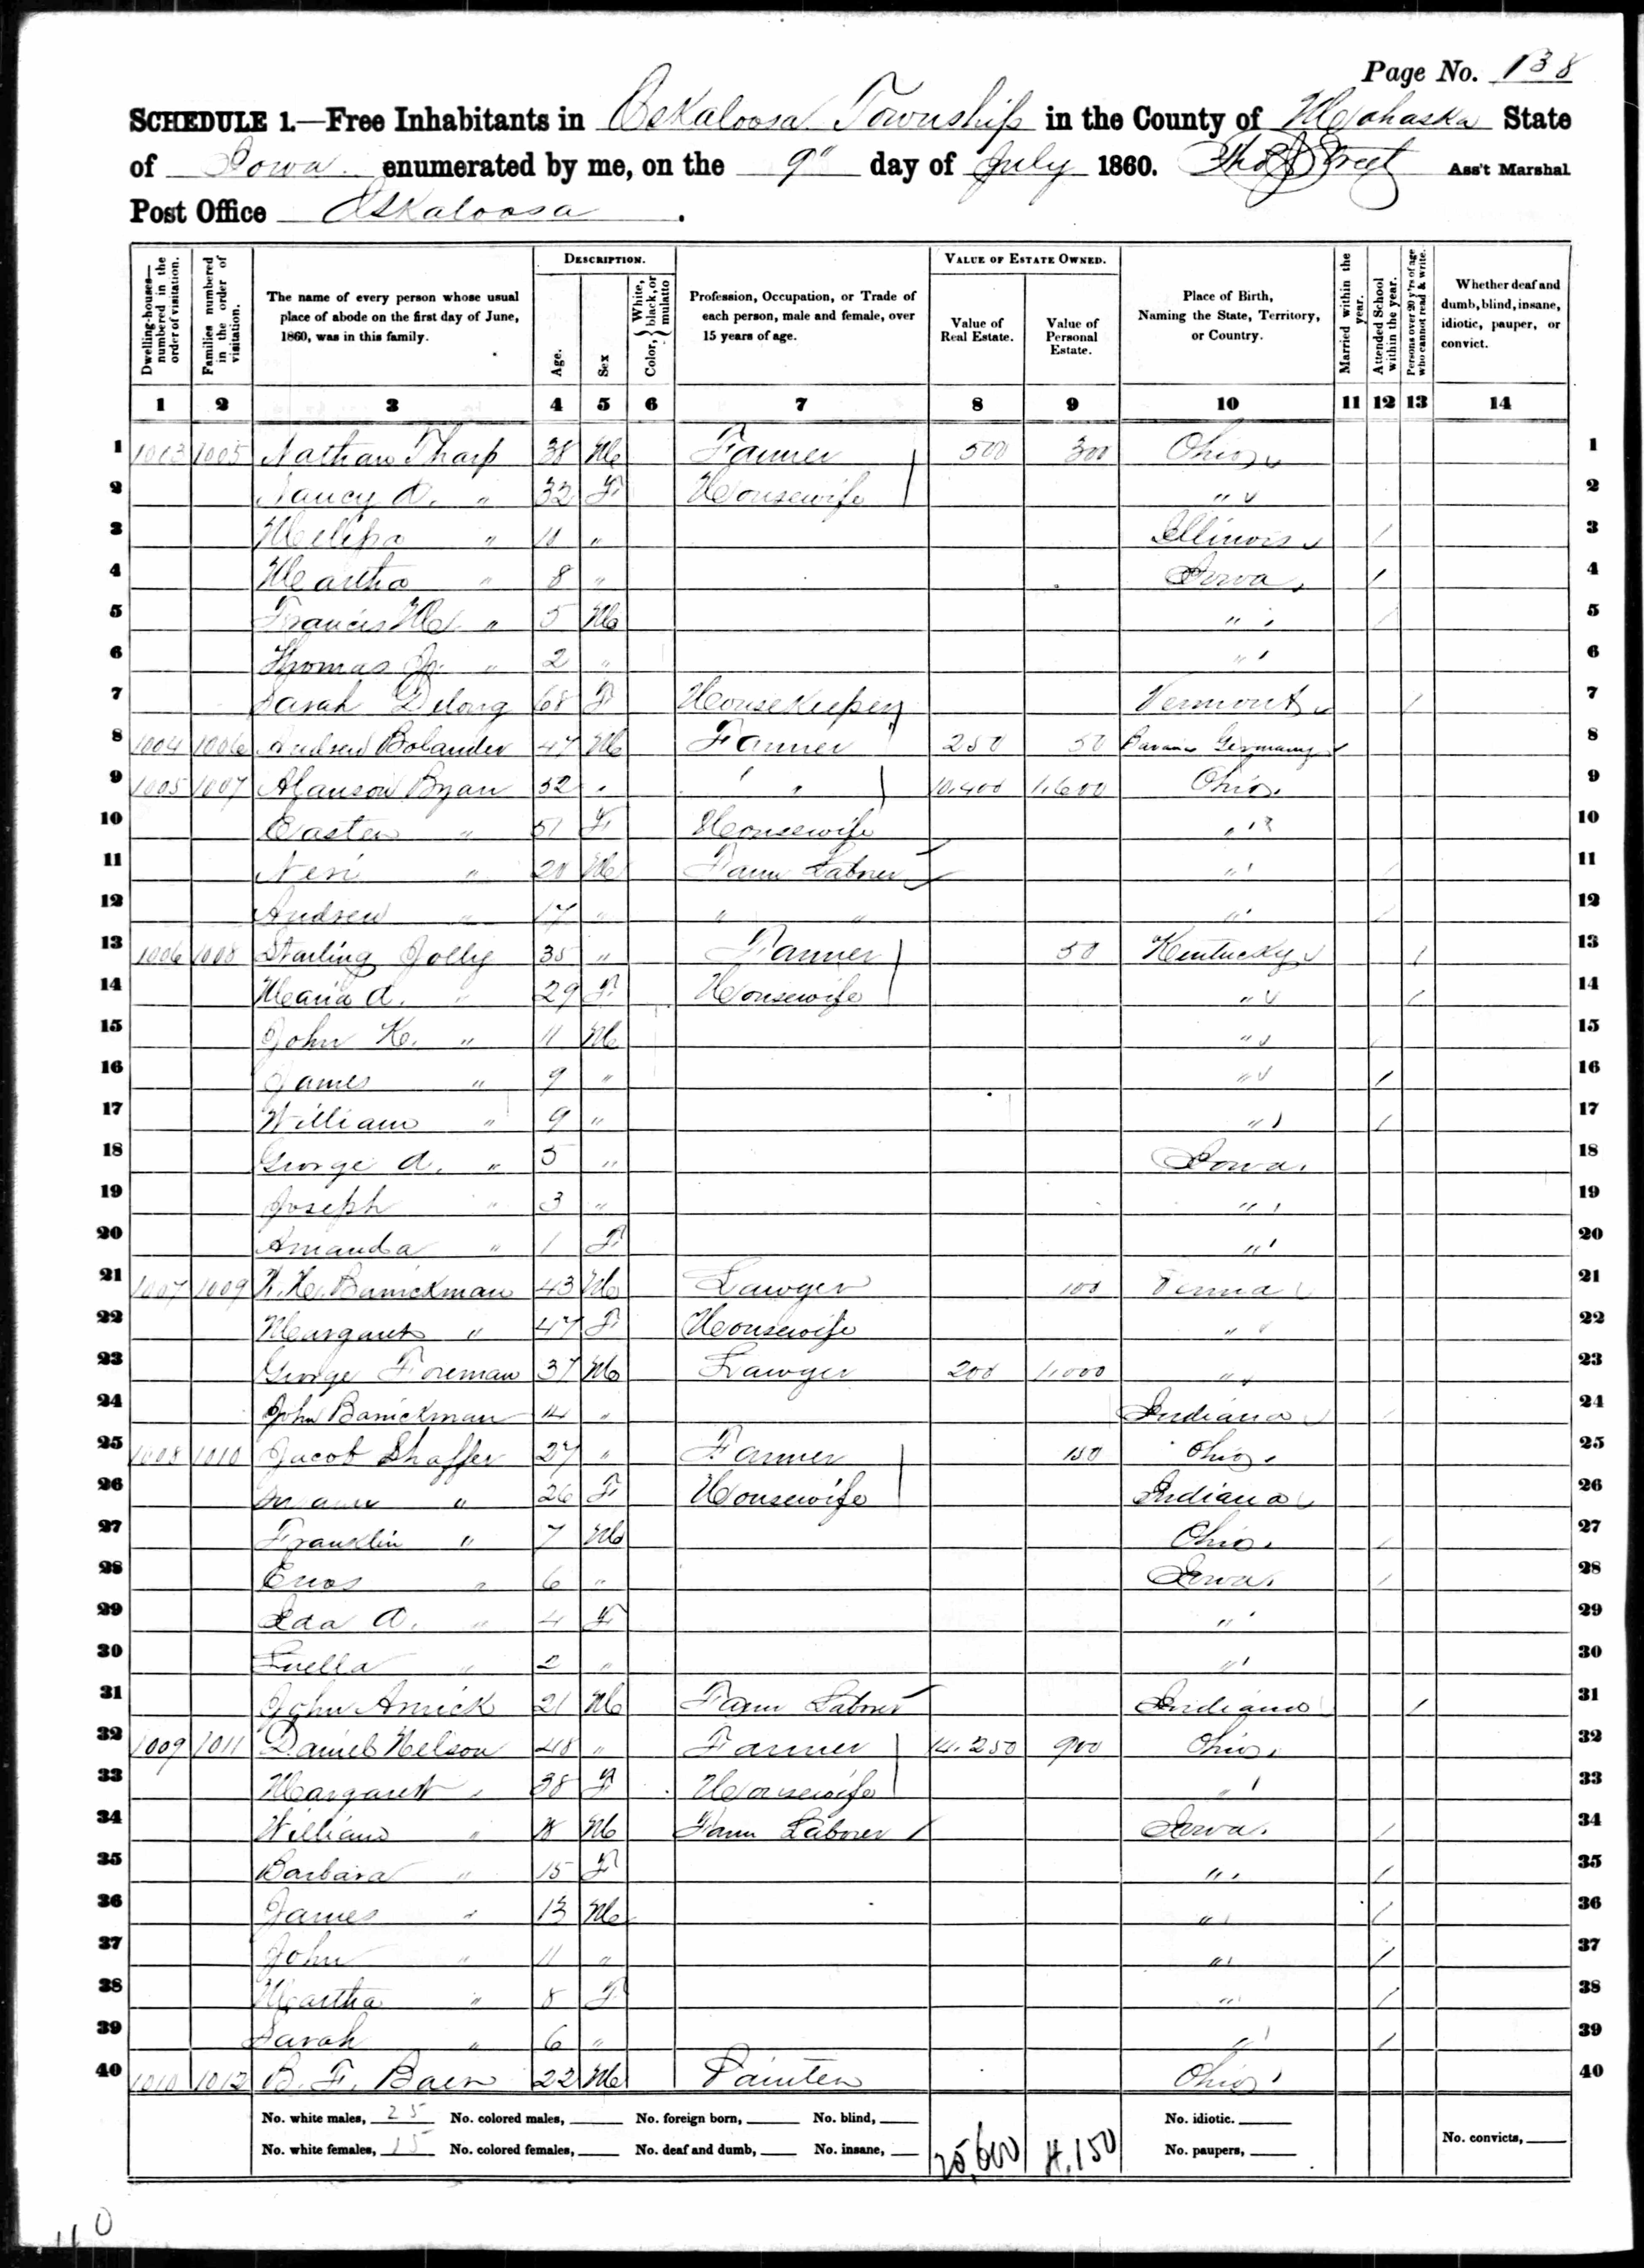 Page No. 138
SCHEDULE 1.—Free Inhabitants in Oskaloosa Township in the County of Mahaska State
of Iowa enumerated by me, on the 9" day of July 1860. Thos J Street Ass't Marshal
Post Office Oskaloosa .
DESCRIPTION. VALUE OF ESTATE OWNED.
Dwelling-houses—numbered in the order of visitation. Families numbered in the order of visitation. The name of every person whose usual place of abode on the first day of June, 1860, was in this family. Age. Sex Color, } White, black, or mulatto Profession, Occupation, or Trade of each person, male and female, over 15 years of age. Value of Real Estate. Value of Personal Estate. Place of Birth, Naming the State, Territory, or Country. Married within the year. Attended School within the year. Persons over 20 y'rs of age who cannot read & write. Whether deaf and dumb, blind, insane, idiotic, pauper, or convict.
1 2 3 4 5 6 7 8 9 10 11 12 13 14
1 1003 1005 Nathan Tharp 38 M Farmer 500 300 Ohio 1
2 Nancy A. " 32 F Housewife " 2
3 Melissa " 11 " Illinois / 3
4 Martha " 8 " Iowa / 4
5 Francis M " 5 M " / 5
6 Thomas J. " 2 " " 6
7 Sarah Delong 68 F Housekeeper Vermont / 7
8 1004 1006 Andrew Bolander 47 M Farmer 250 50 Bavaria Germany 8
9 1005 1007 Alanson Ryan 52 " " 10,400 1,600 Ohio 9
10 Easter " 51 F Housewife " 10
11 Neri " 20 M Farm Laborer " / 11
12 Andrew " 17 " " " " / 12
13 1006 1008 Starling Jolly 35 " Farmer 50 Kentucky / 13
14 Maria A. " 29 F Housewife " / 14
15 John K. " 11 M " / 15
16 James " 9 " " / 16
17 William " 9 " " / 17
18 George A. " 5 " Iowa 18
19 Joseph " 3 " " 19
20 Amanda " 1 F " 20
21 1007 1009 Barrickman 43 M Lawyer 100 Penna 21
22 Margaret " 47 F Housewife " 22
23 George Foreman 37 M Lawyer 200 1,000 " 23
24 John Barrickman 14 " Indiana / 24
25 1008 1010 Jacob Shaffer 27 " Farmer 150 Ohio 25
26 " 26 F Housewife Indiana 26
27 Franklin " 7 M Ohio / 27
28 Enos " 6 " Iowa / 28
29 Ida A. " 4 F " 29
30 Luella " 2 " " 30
31 John Amick 21 M Farm Laborer Indiana / 31
32 1009 1011 Daniel Nelson 48 " Farmer 14,250 900 Ohio 32
33 Margaret " 38 F Housewife " 33
34 William " 18 M Farm Laborer Iowa / 34
35 Barbara " 15 F " / 35
36 James " 13 M " / 36
37 John " 11 " " / 37
38 Martha " 8 F " / 38
39 Sarah " 6 " " / 39
40 1010 1012 B. F. Baer 22 M Painter Ohio 40
No. white males, 25 No. colored males, No. foreign born, No. blind, No. idiotic.
No. white females, 15 No. colored females, No. deaf and dumb, No. insane, 25,600 4,150 No. paupers, No. convicts,